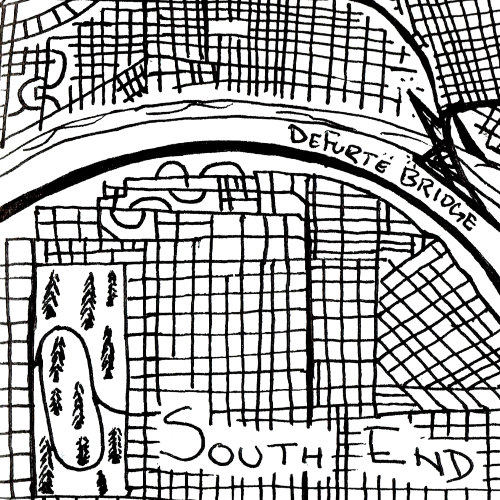 DEFURTE BRIDGE
SOUTH END